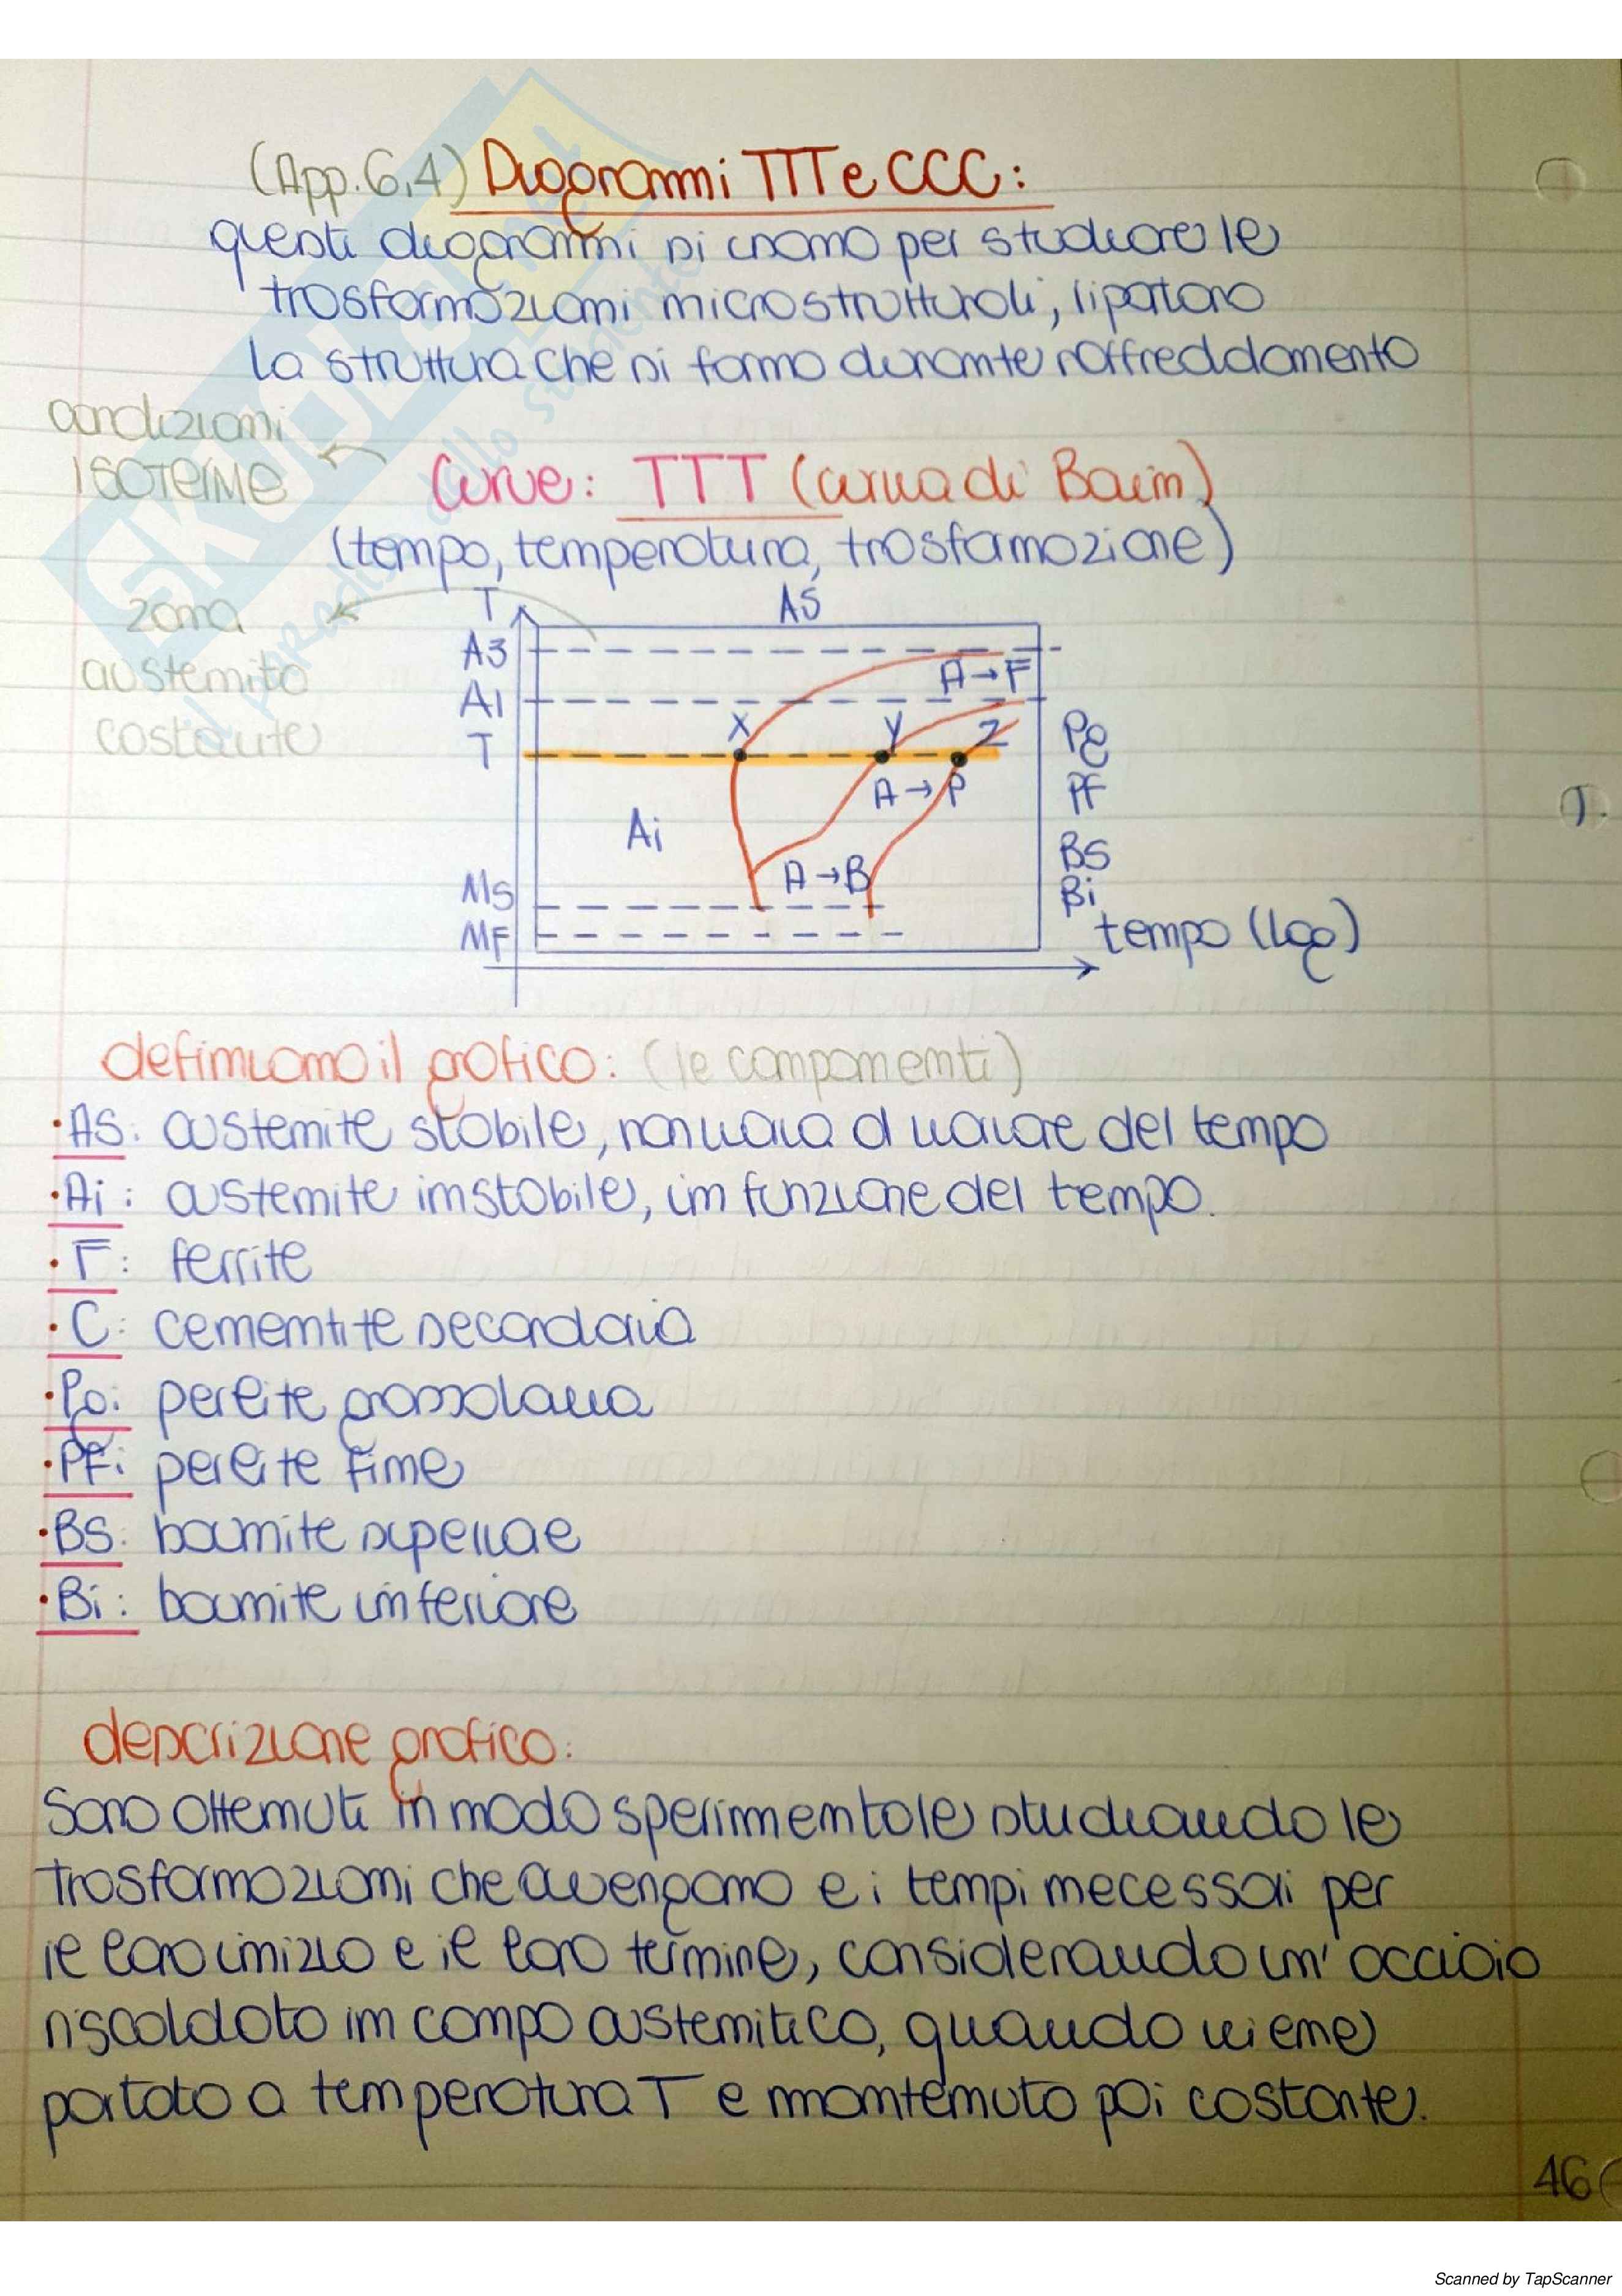 (App. 6,4) Diagrammi TTT e CCC:
questi diagrammi si usano per studiare le
trasformazioni microstrutturali, riportano
la struttura che si forma durante raffreddamento
condizioni
ISOTERME
Curve: TTT (curva di Bain)
(tempo, temperatura, trasformazione)
zona
austenite
costante
T
AS
A3
A→F
A1
X
Y
Z
Pg
T
A→P
PF
Ai
A→B
BS
MS
Bi
MF
tempo (log)
definiamo il grafico: (le componenti)
• AS: austenite stabile, non varia al variare del tempo
• Ai: austenite instabile, in funzione del tempo.
• F: ferrite
• C: cementite secondaria
• Pg: perlite grossolana
• PF: perlite fine
• BS: bainite superiore
• Bi: bainite inferiore
descrizione grafico:
Sono ottenuti in modo sperimentale studiando le
trasformazioni che avvengono e i tempi necessari per
il loro inizio e il loro termine, considerando un'acciaio
riscaldato in campo austenitico, quando viene
portato a temperatura T e mantenuto poi costante.
46
Scanned by TapScanner